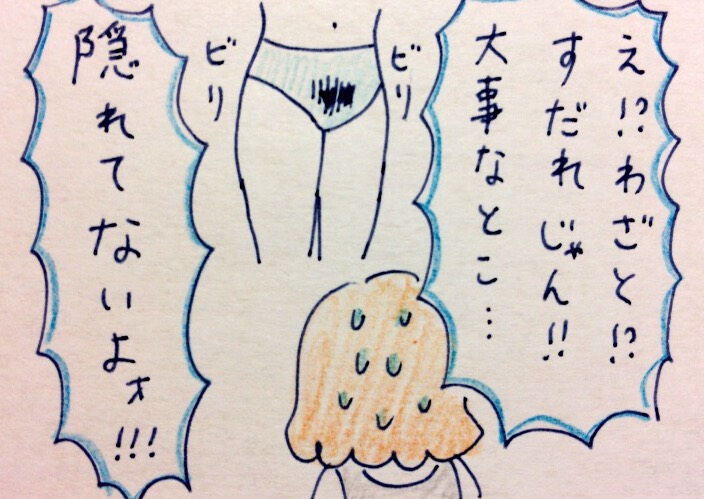 え!?わざと!?
すだれじゃん!!
大事なとこ…
ビリ
ビリ
隠れてないよォ!!!